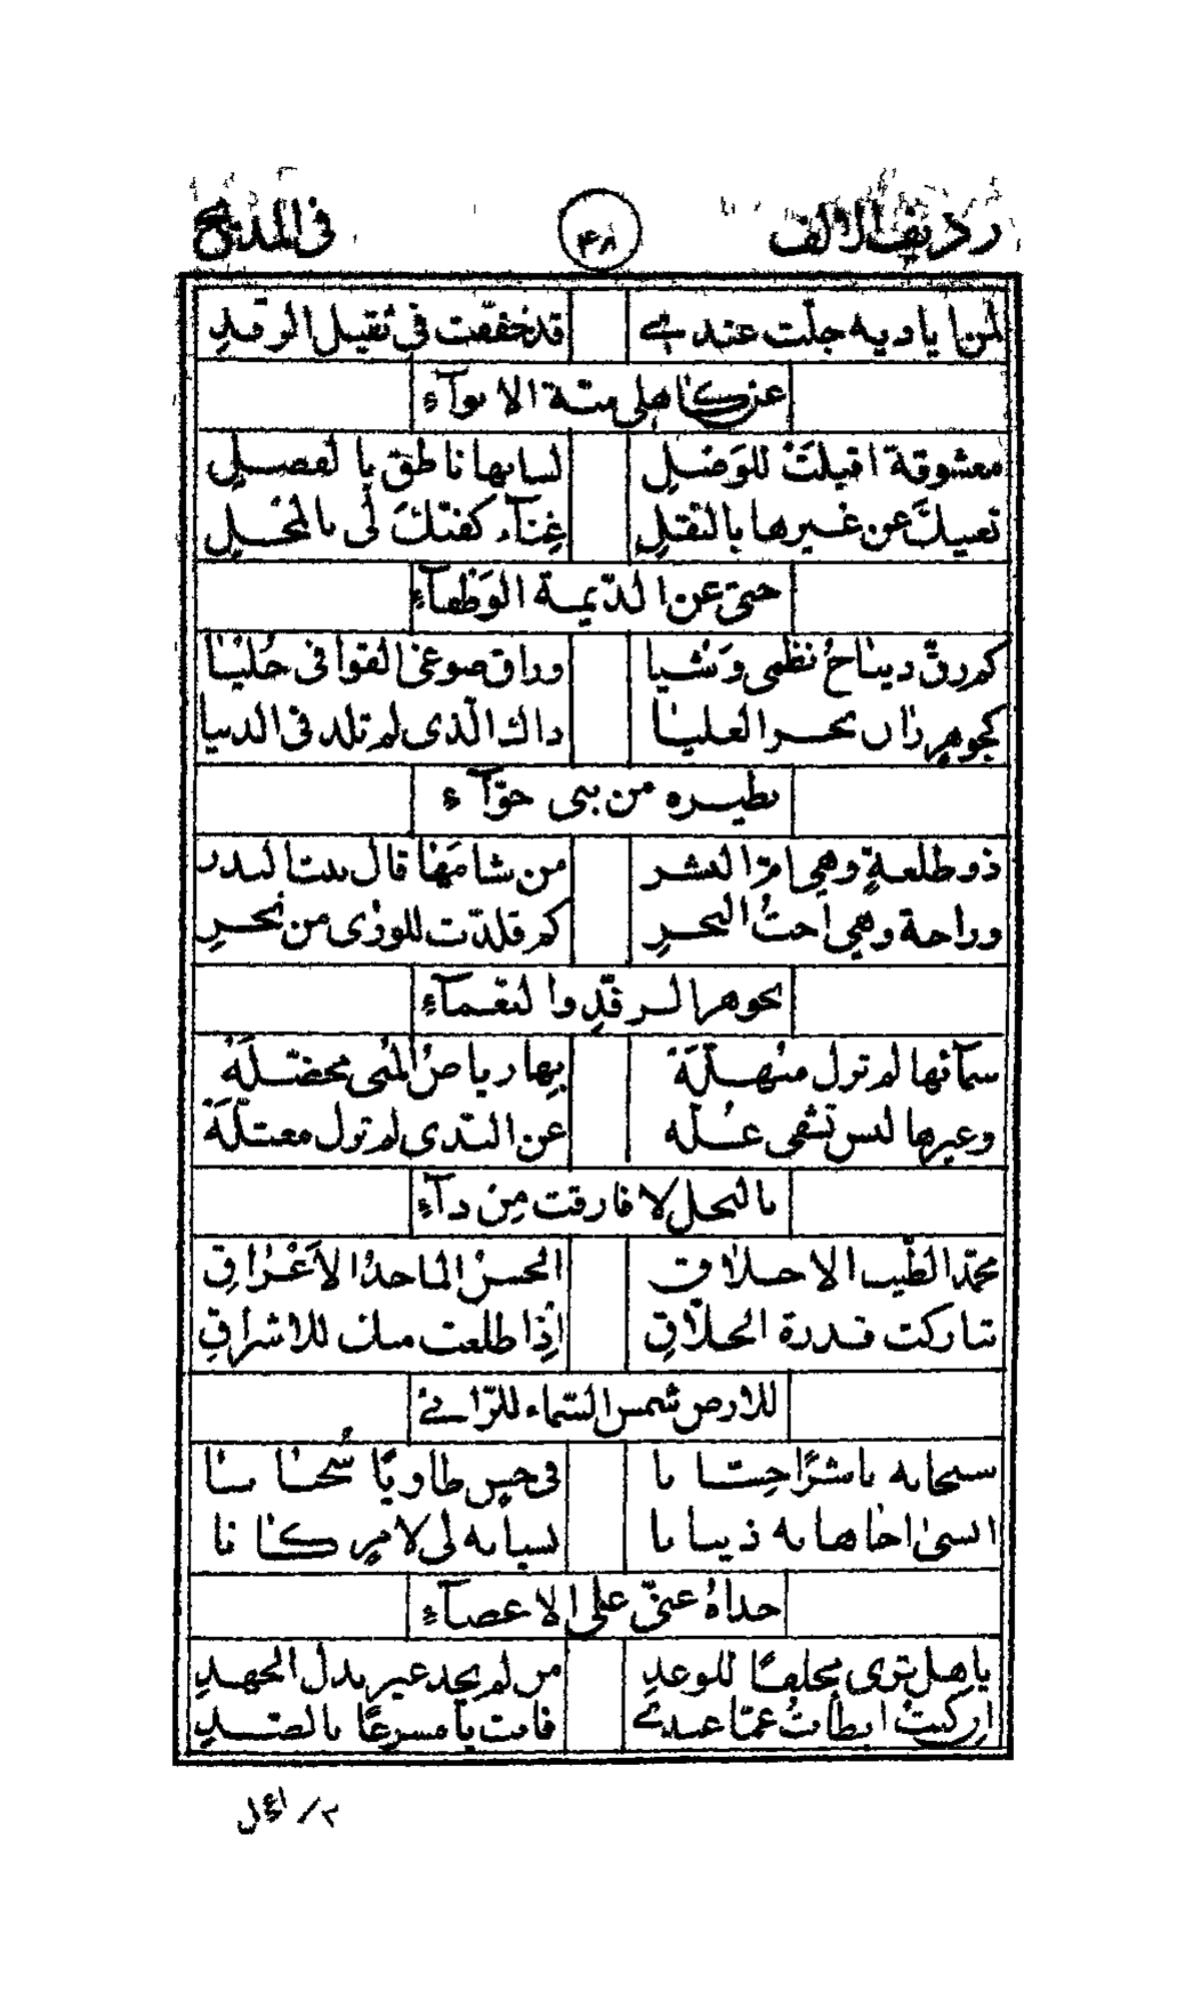 رديف الالف ٤٨ في المديح
لمن اياديه جلّت عندي قد خففت في ثقيل الرفدِ
عن كاهلي منة الانوآءِ
معشوقة اقبلت للوَصْلِ لسانها ناطق بالفصلِ
تعيك عن غيرها بالنقلِ غِنآء كفتك لي بالمحْلِ
حتى عن الدّيمة الوَطْفآءِ
كم رقّ ديباحُ نظمي وَشْيا وراق صوغي القوافي حُليْا
كجوهرٍ زان بحر العليا ذاك الّذي لم تلد في الدنيا
نظيره من بني حوّآءِ
ذو طلعةٍ وهي امّ البشر من شامَها قال بنت البدر
وراحة وهي اختُ البحرِ كم قلّدت للورى من نحرِ
بجوهر الرفدِ والنعمآءِ
سمآئها لم تزل منهلّة بها رياض المنى مخضلّة
وغيرها ليس تشفي غُلّه عن الندى لم تزل معتلّة
بالبخل لا فارقت مِن دآءِ
محمّد الطّيب الاخلاق الحسنُ الماجدُ الأعْراقِ
تباركت قدرة الخلّاقِ اِذا طلعت منك للاشراقِ
للارض شمس السّماء للرّائي
في حينِ طاويًا
انسى اخاها به ذبيانا نسيانه لي لامرٍ كانا
حداهُ عنّي على الاعضآءِ
يا هل ترى مخلفًا للوعدِ من لم يجد غير بذل الجهدِ
ان كنتُ ابطأتُ عمّا عندي فانت يا مسرعًا بالصّدِّ